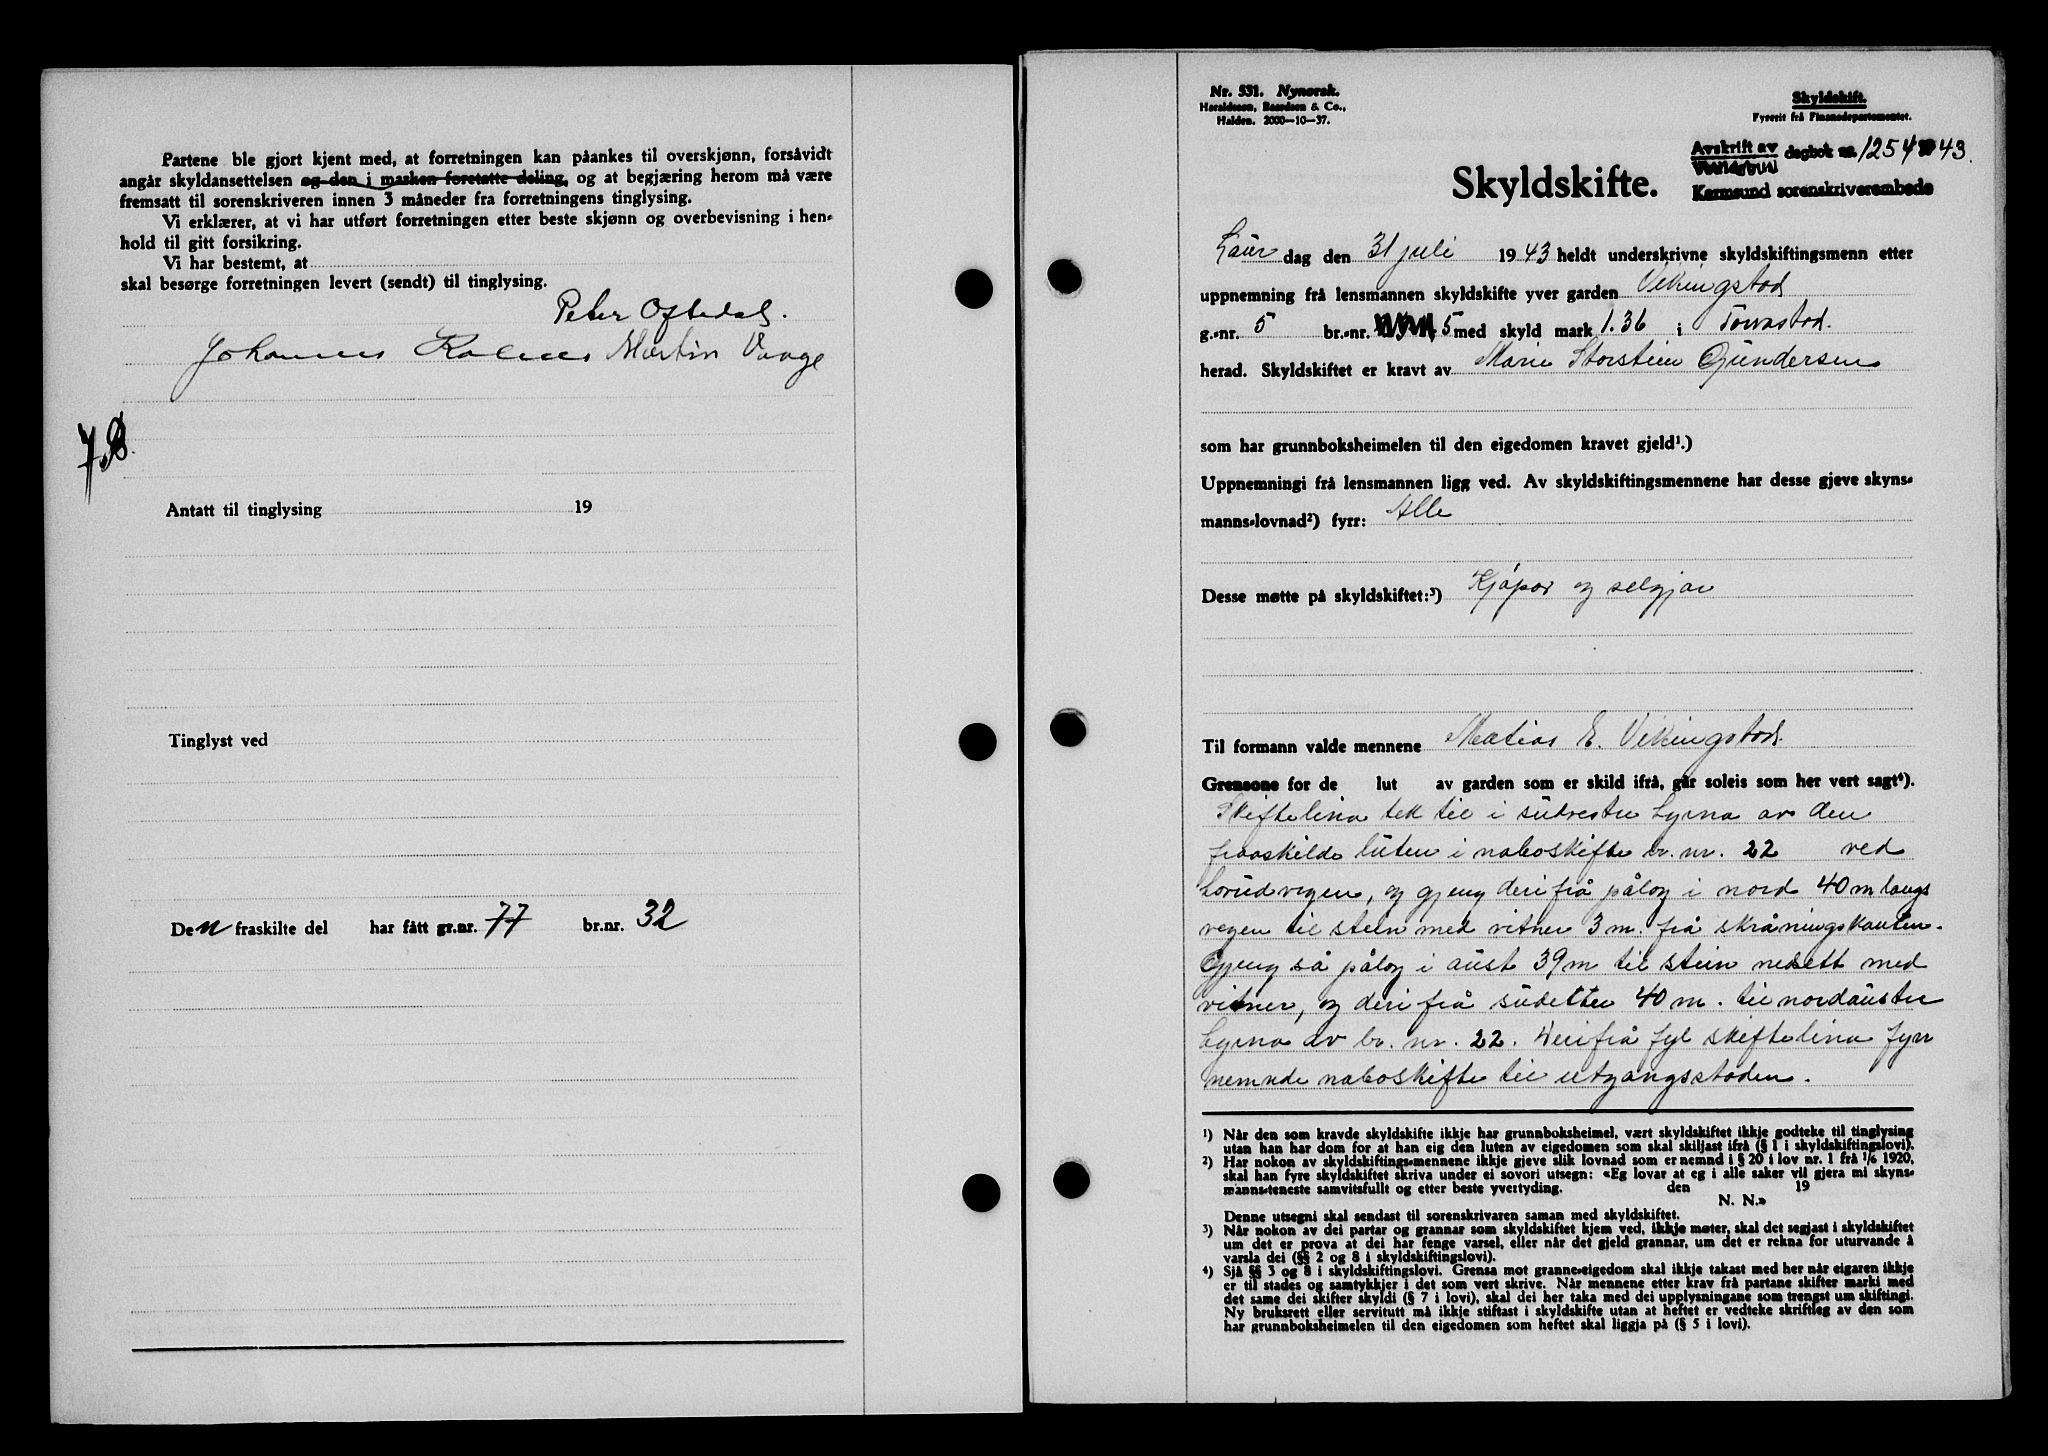 Partene ble gjort kjent med, at forretningen kan påankes til overskjønn, forsåvidt
angår skyldansettelsen og den i marken foretatte deling, og at begjæring herom må være
fremsatt til sorenskriveren innen 3 måneder fra forretningens tinglysing.
Vi erklærer, at vi har utført forretningen etter beste skjønn og overbevisning i hen-
hold til gitt forsikring.
Vi har bestemt, at
skal besørge forretningen levert (sendt) til tinglysing.
Peter Oftedal.
Johannes Martin Vaage
Antatt til tinglysing 19
Tinglyst ved
Den fraskilte del har fått gr.nr. 77 br.nr. 32
Nr. 531. Nynorsk.
Haraldssen, Basedsen & Co.,
Halden. 2000-10-37.
Skyldskift.
Fyserit frå Finansdepartementet.
Avskrift av dagbok nr. 1254 43.
Karmsund sorenskriverembede
Skyldskifte.
Laur dag den 31 juli 1943 heldt underskrivne skyldskiftingsmenn etter
uppnemning frå lensmannen skyldskifte yver garden Vikingstad
g.-nr. 5 br.-nr. 5 med skyld mark 1.36 i Torvastad.
herad. Skyldskiftet er kravt av Marie Storstein Gundersen
som har grunnboksheimelen til den eigedomen kravet gjeld¹.)
Uppnemningi frå lensmannen ligg ved. Av skyldskiftingsmennene har desse gjeve skyns-
manns-lovnad²) fyrr: Alle
Desse møtte på skyldskiftet:³) Kjøpar og seljar
Til formann valde mennene Matias E. Vikingstad.
Grensone for de lut av garden som er skild ifrå, går soleis som her vert sagt⁴).
Skiftelina tek til i sudvestre hyrna av den
fraaskilde luten i naboskifte br. nr. 22 ved
vegen, og gjeng derifrå pålag i nord 40 m langs
vegen til stein med vitner 3 m. frå skråningskanten.
Gjeng så pålag i aust 39 m til stein nedsett med
vitner, og derifrå sudetter 40 m. til nordaustre
hyrna av br. nr. 22. Derifrå fyl skiftelina fyrr
nemnde naboskifte til utgangsstaden.
¹) Når den som kravde skyldskifte ikkje har grunnboksheimel, vært skyldskiftet ikkje godteke til tinglysing
utan han har dom for at han eig den luten av eigedomen som skal skiljast ifrå (§ 1 i skyldskiftingslovi).
²) Har nokon av skyldskiftings-mennene ikkje gjeve slik lovnad som er nemnd i § 20 i lov nr. 1 frå 1/6 1920,
skal han fyre skyldskiftet skriva under ei sovori utsegn: «Eg lovar at eg i alle saker vil gjera mi skyns-
manns-teneste samvitsfullt og etter beste yvertyding. den 19
N. N.»
Denne utsegni skal sendast til sorenskrivaren saman med skyldskiftet.
³) Når nokon av dei partar og grannar som skyldskiftet kjem ved, ikkje møter, skal det segjast i skyldskiftet
um det er prova at dei har fenge varsel, eller når det gjeld grannar, um det er rekna for uturvande å
varsla dei (§§ 2 og 8 i skyldskiftingslovi).
⁴) Sjå §§ 3 og 8 i skyldskiftingslovi. Grensa mot granne-eigedom skal ikkje takast med her når eigaren ikkje
er til stades og samtykkjer i det som vert skrive. Når mennene etter krav frå partane skifter marki med
det same dei skifter skyldi (§ 7 i lovi), skal dei her taka med dei upplysningane som trengst um skiftingi.
Ny bruksrett eller servitutt må ikkje stiftast i skyldskifte utan at heftet er vedteke skriftleg av den som
har grunnboksheimelen til den eigedomen som heftet skal liggja på (§ 5 i lovi).